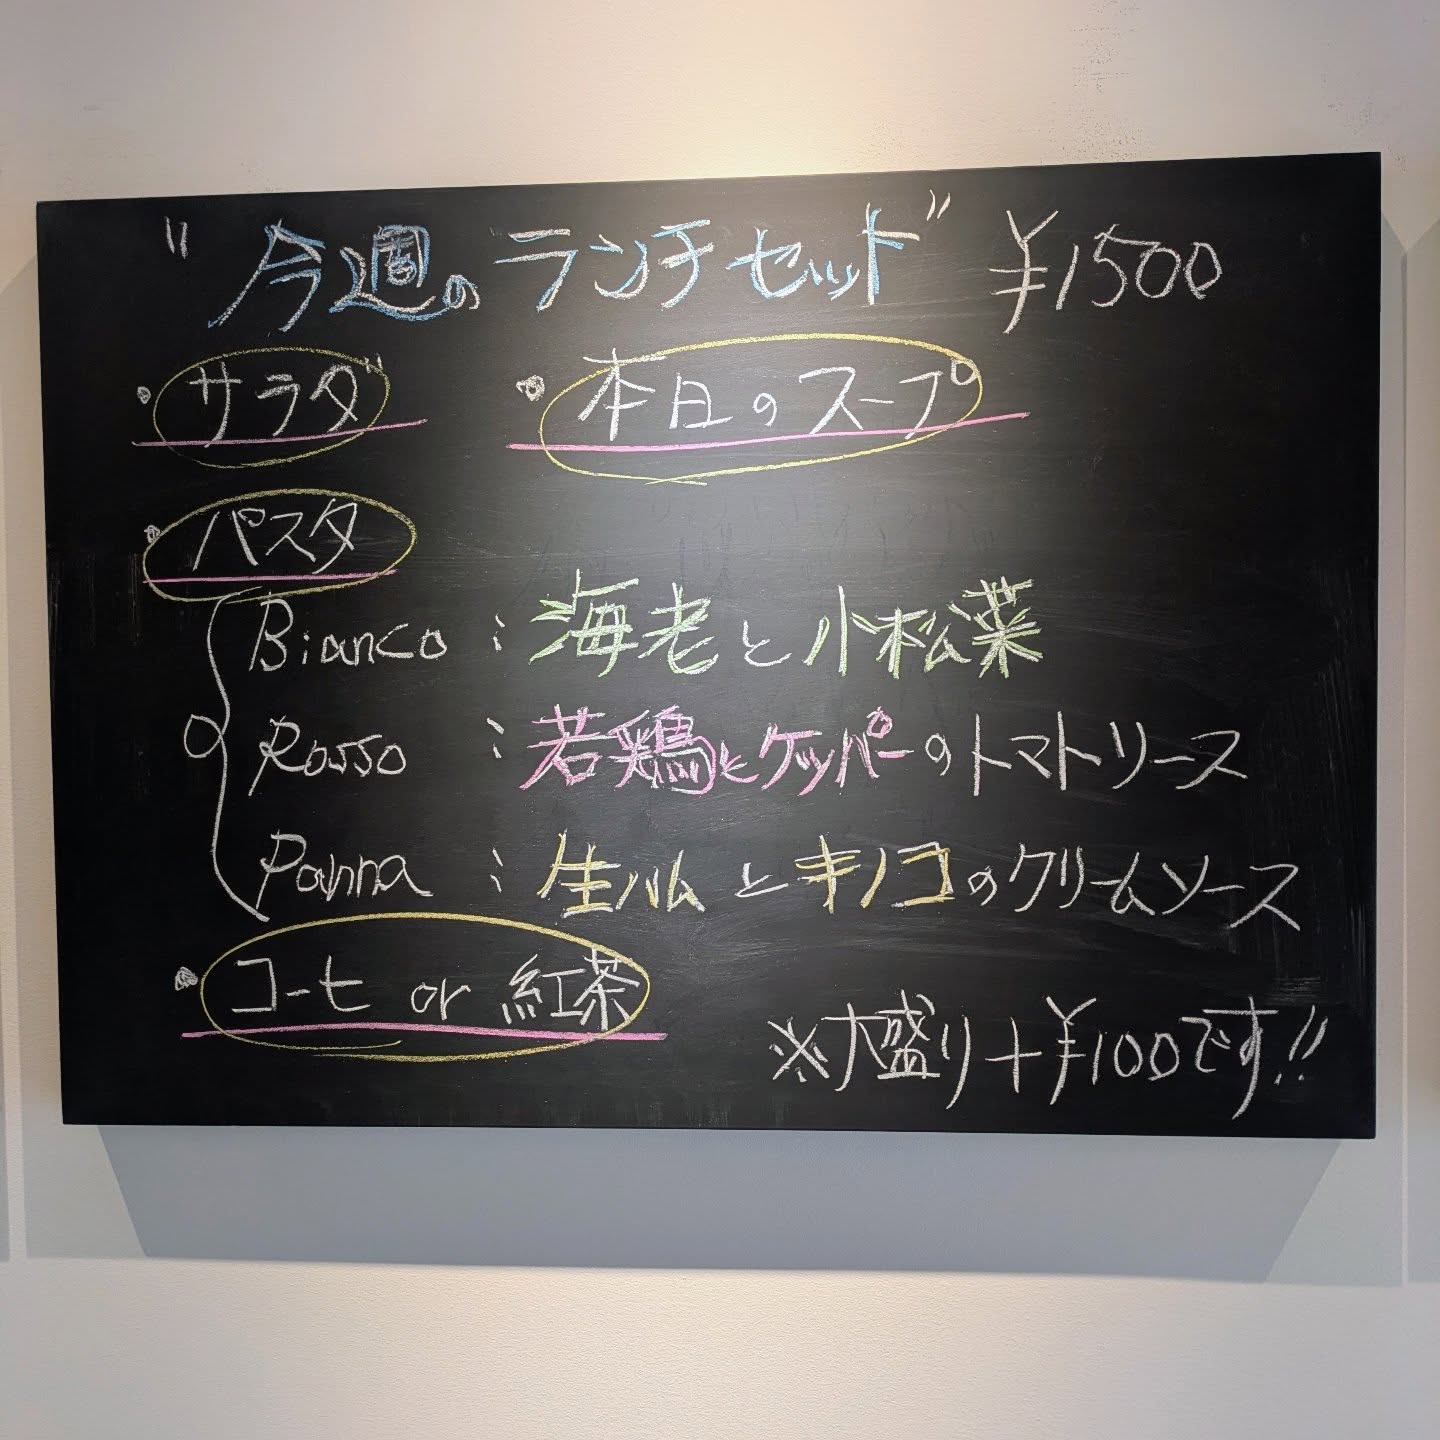 "今週のランチセット" ¥1500
・サラダ ・本日のスープ
・パスタ
Bianco : 海老と小松菜
Rosso : 若鶏とケッパーのトマトソース
Panna : 生ハムとキノコのクリームソース
・コーヒ or 紅茶
※大盛り+¥100です!!